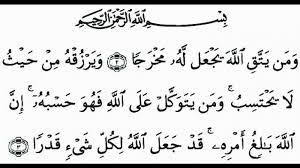 بِسْمِ اللَّهِ الرَّحْمَٰنِ الرَّحِيمِ
وَمَن يَتَّقِ اللَّهَ يَجْعَل لَّهُۥ مَخْرَجًا ۝٢ وَيَرْزُقْهُ مِنْ حَيْثُ
لَا يَحْتَسِبُ ۚ وَمَن يَتَوَكَّلْ عَلَى اللَّهِ فَهُوَ حَسْبُهُۥٓ ۚ إِنَّ
اللَّهَ بَٰلِغُ أَمْرِهِۦ ۚ قَدْ جَعَلَ اللَّهُ لِكُلِّ شَيْءٍ قَدْرًا ۝٣